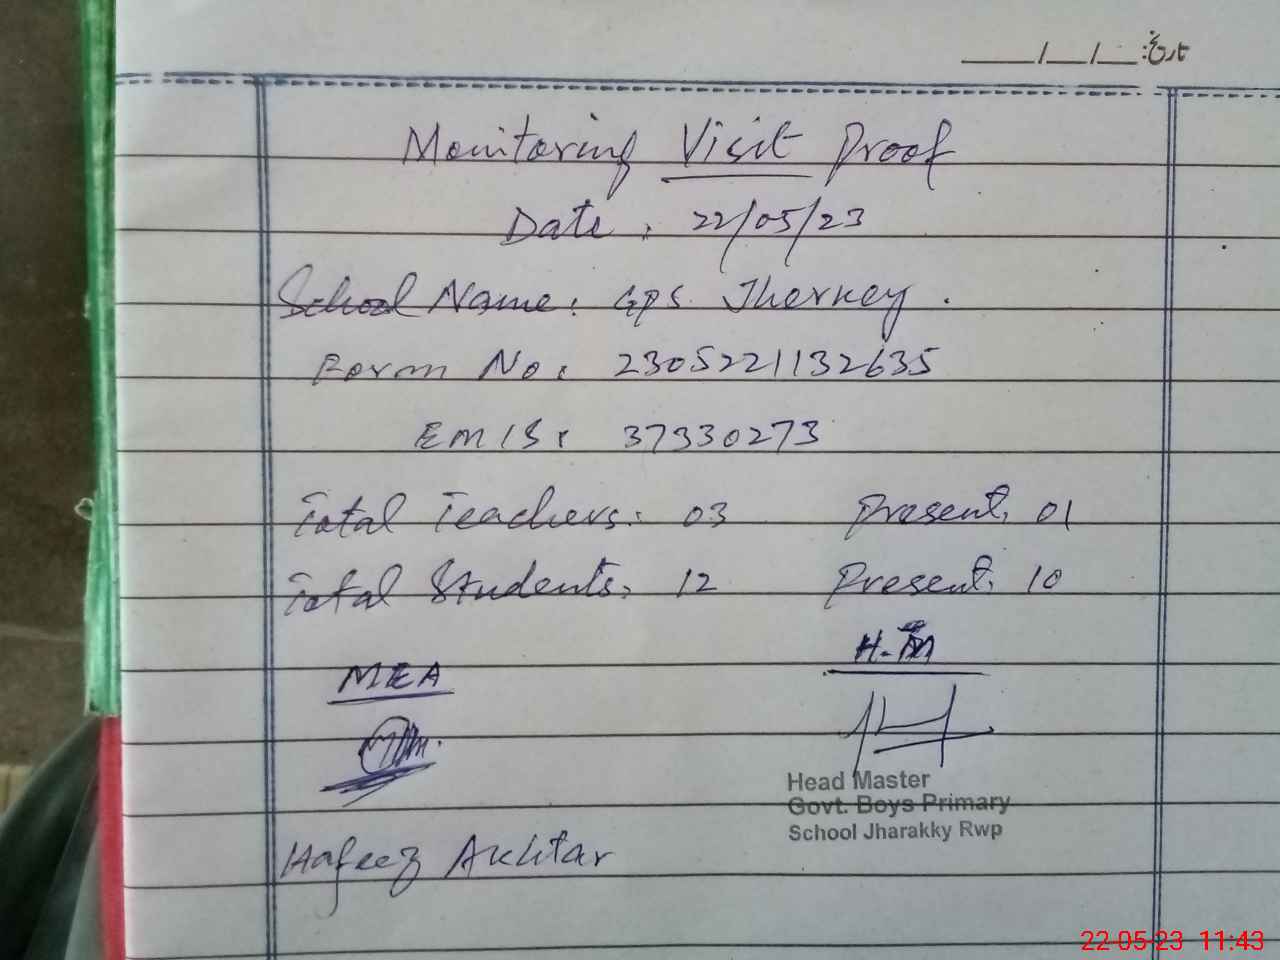 تاریخ: __/__/____
Monitoring Visit Proof
Date: 22/05/23
School Name: GPS Jherkey.
Form No: 2305221132635
EMIS: 37330273
Total Teachers: 03 Present: 01
Total Students: 12 Present: 10
MEA H-M
Head Master
Govt. Boys Primary
School Jharakky Rwp
Hafeez Akhtar
22-05-23 11:43